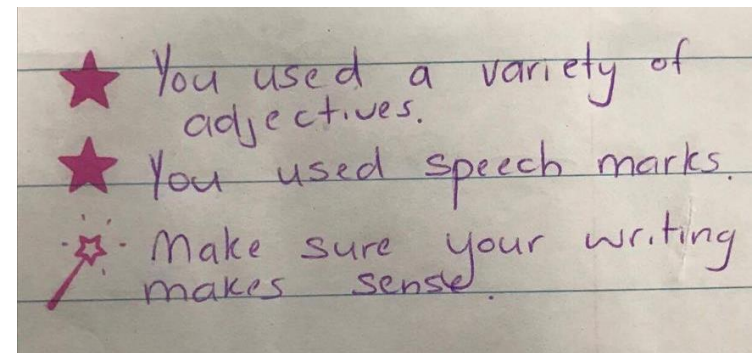 You used a variety of
adjectives.
You used speech marks.
Make sure your writing
makes sense.